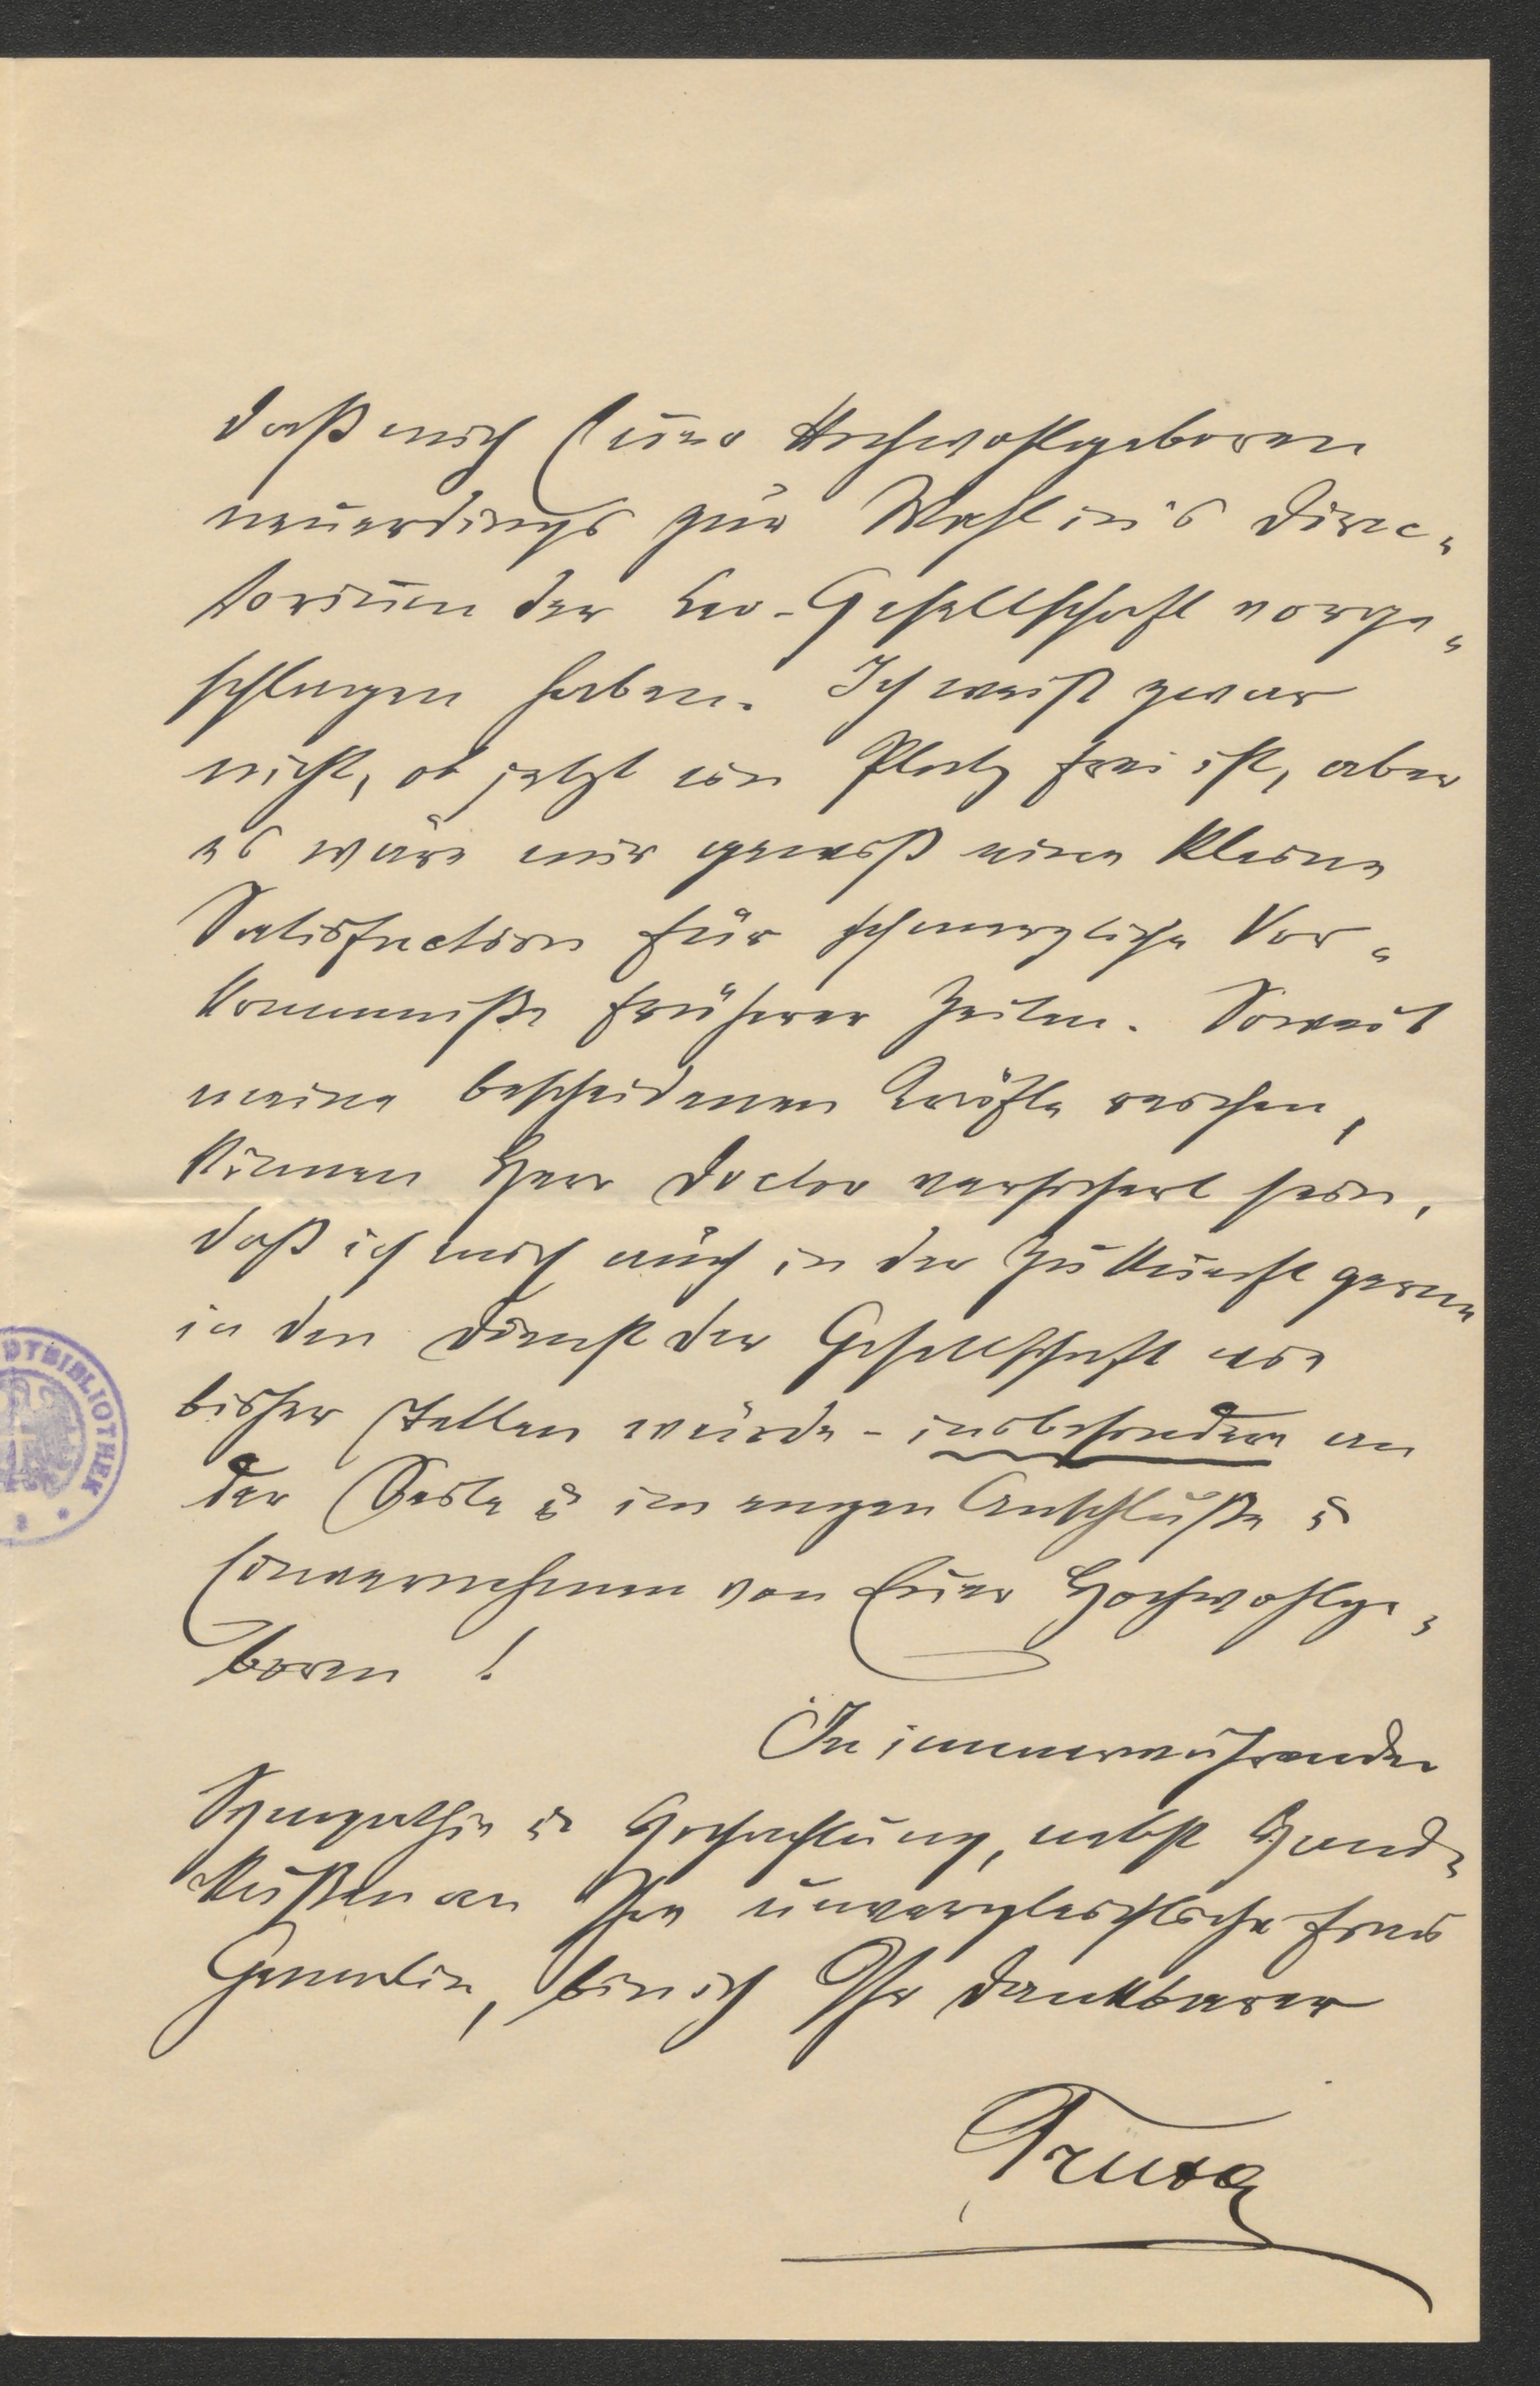 daß mich Euer Hochwohlgeboren
neuerdings zur Wahl in's Direc„
torium der Leo-Gesellschaft vorge„
schlagen haben. Ich weiß zwar
nicht, ob jetzt ein Platz frei ist, aber
es wäre mir gewiß eine kleine
Satisfaction für schmerzliche Vor„
kommniße früherer Zeiten. Soweit
meine bescheidenen Kräfte reichen,
können Herr Doctor versichert sein,
daß ich mich auch in der Zukunft gerne
in den Dienst der Gesellschaft wie
bisher stellen würde - insbesondere an
der Seite u im engen Anschluße u
Einvernehmen von Euer Hochwohlge„
boren !
In immerwährender
Sympathie u Hochachtung, nebst Hand„
küßen an Ihre unvergleichliche Frau
Gemalin, bin ich Ihr dankbarer
Truxa
DTBIBLIOTHEK